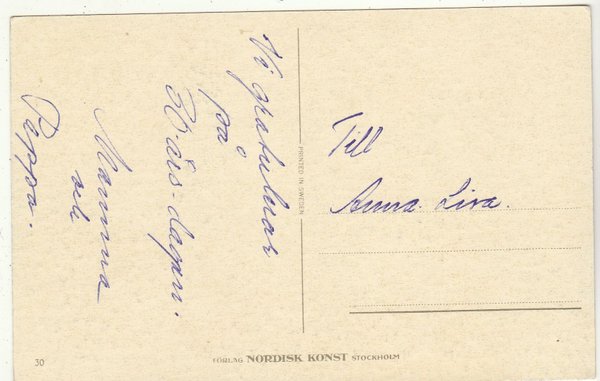 Vi gratuluar
på
30-års-dagen.
Mamma
och
Pappa.
Till
Anna Lisa.
PRINTED IN SWEDEN
30
FÖRLAG NORDISK KONST STOCKHOLM